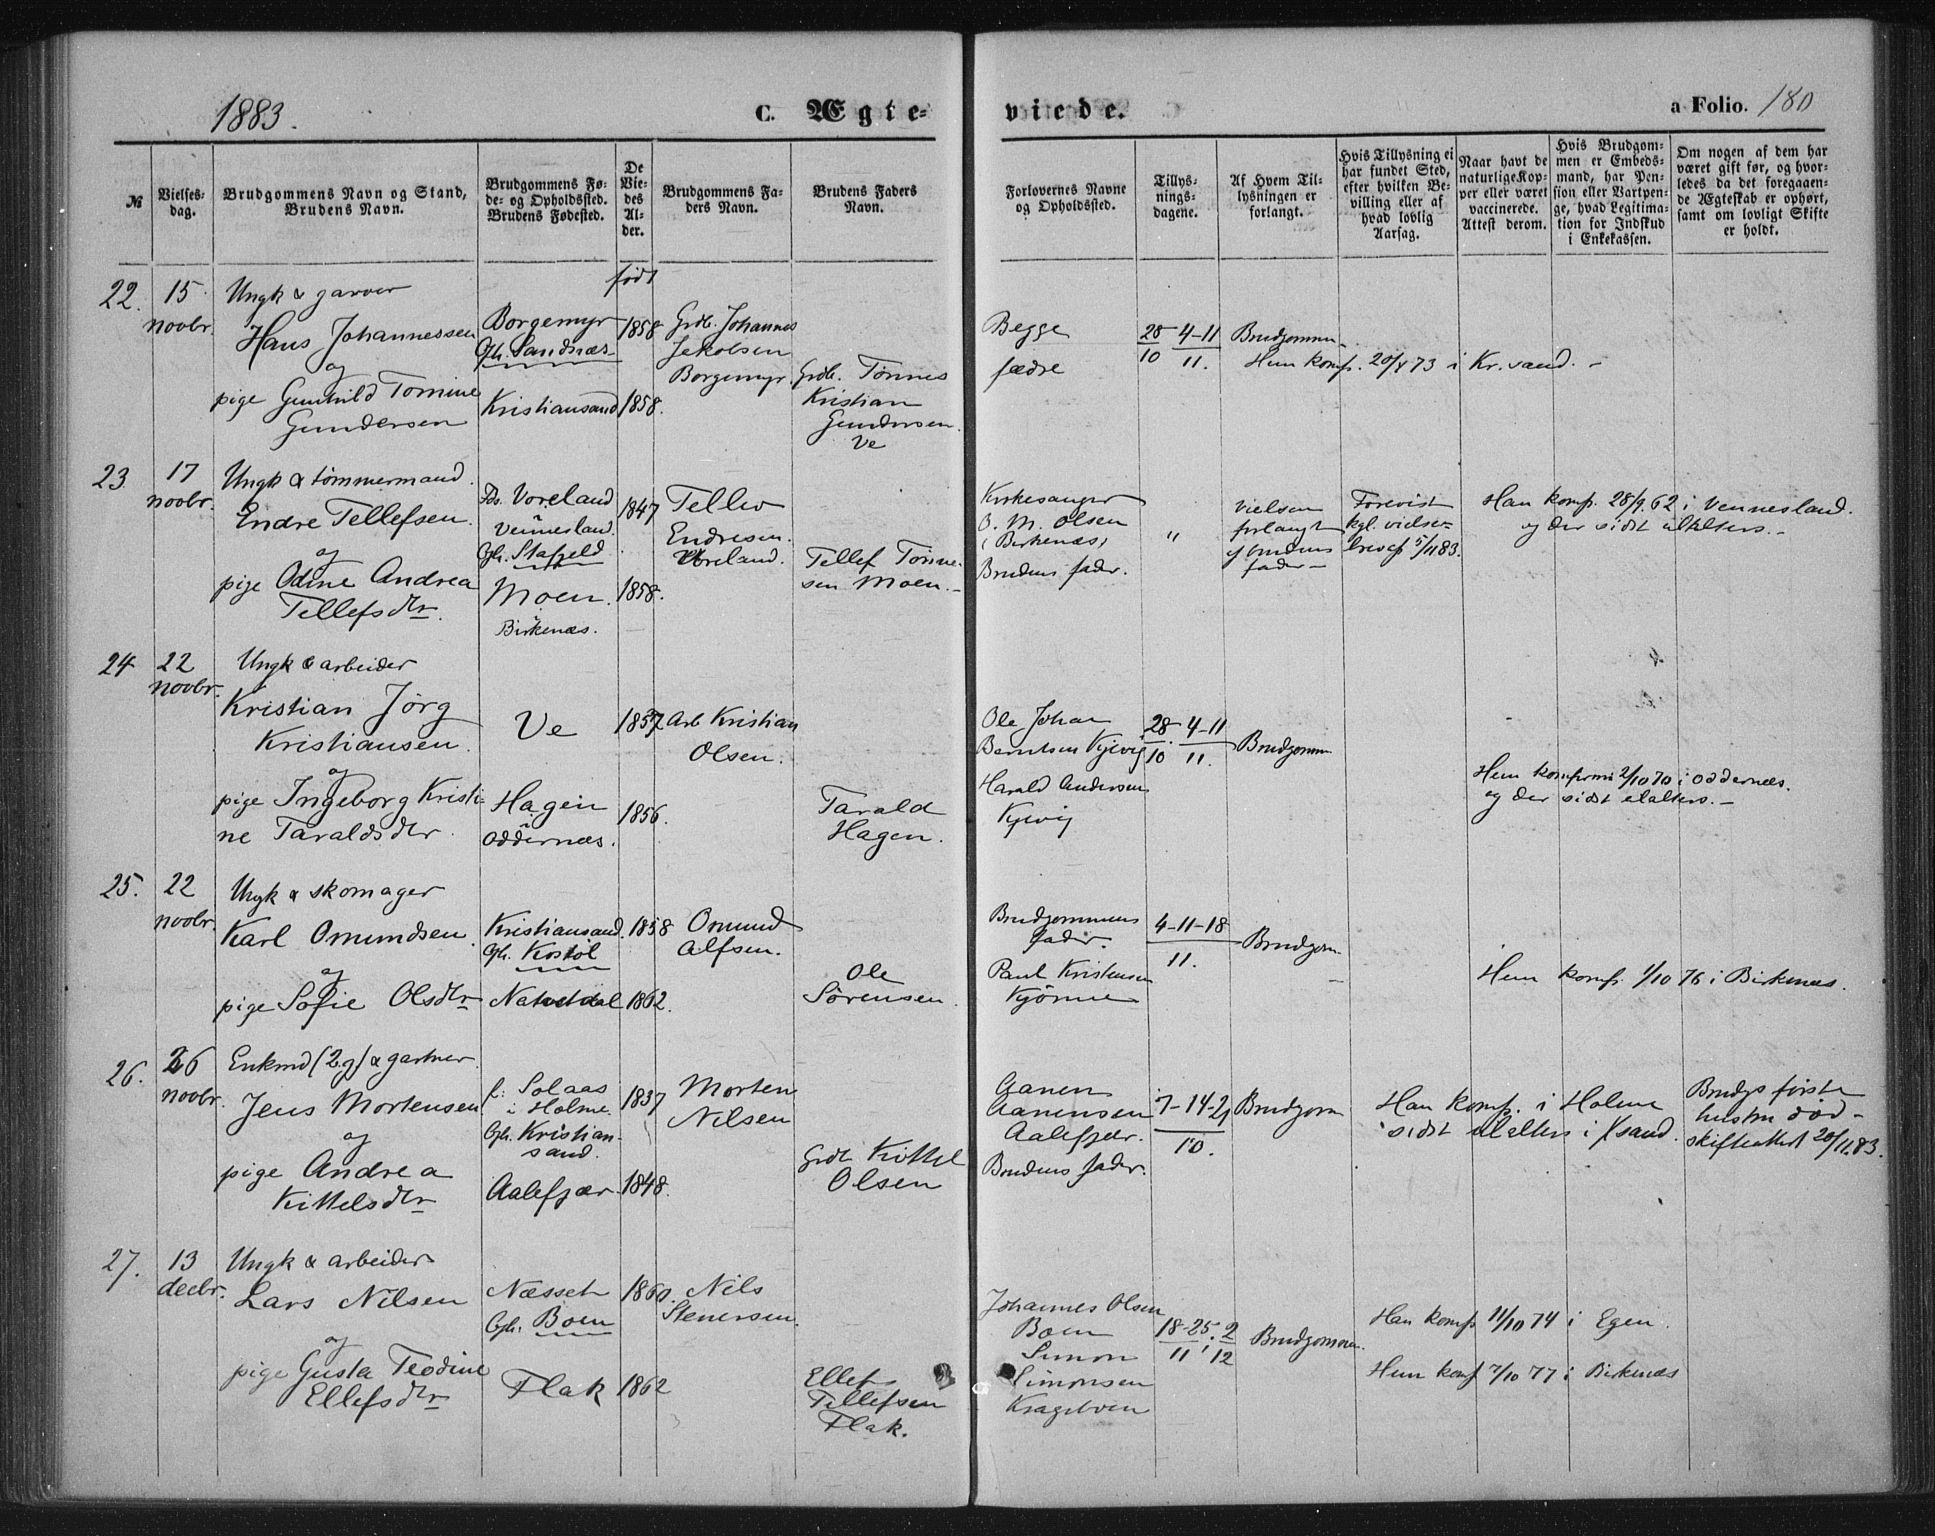 1883.
C. Ægte-
viede.
a Folio. 180
№
Vielses-
dag.
Brudgommens Navn og Stand,
Brudens Navn.
Brudgommens Fø-
de- og Opholdssted.
Brudens Fødested.
De
Vie-
des
Al-
der.
Brudgommens Fa-
ders Navn.
Brudens Faders
Navn.
Forlovernes Navne
og Opholdssted.
Tillys-
nings-
dagene.
Af Hvem Til-
lysningen er
forlangt.
Hvis Tillysning ei
har fundet Sted,
efter hvilken Be-
villing eller af
hvad lovlig
Aarsag.
Naar havt de
naturlige Kop-
per eller været
vaccinerede.
Attest derom.
Hvis Brudgom-
men er Embeds-
mand, har Pen-
sion eller Vartpen-
ge, hvad Legitima-
tion for Indskud
i Enkekassen.
Om nogen af dem har
været gift før, og hvor-
ledes da det foregaaen-
de Ægteskab er ophørt,
samt om lovligt Skifte
er holdt.
født
22. 15 novbr.
Ungk & garver
Hans Johannessen
og
pige Gunhild Tomine
Gundersen
Borgemyr
Oph. Sandnæs
Kristiansand
1858
1858.
Grdb. Johannes
Jakobsen
Borgemyr.
Grdb. Tønnes
Kristian
Gundersen
Ve
Begge
fædre
28 4-11
10 11.
Brudgommen
Hun konf. 20/4 73 i Kr.sand. -
23 17 novbr.
Ungk & tømmermand.
Endre Tellefsen.
og
pige Odine Andrea
Tellefsdtr.
Fds. Voreland
i
Vennesland.
Oph. Stafjeld
Moen.
i
Birkenæs.
1847
1858.
Tellev
Endresen
Voreland.
Tellef Tønne-
sen Moen. -
Kirkesanger
O. M. Olsen
(Birkenæs)
Brudens fader.
"
Vielsen
forlangt
af brudens
fader -
Forevist
kgl. vielse-
brev af 5/11 83.
Han konf. 28/9 62 i Vennesland.
og der sidst til alters. -
24 22 novbr.
Ungk & arbeider
Kristian Jörg
Kristiansen.
og
pige Ingeborg Kristi-
ne Taraldsdtr.
Ve
Hagen
i
Oddernæs.
1857
1856.
Arb Kristian
Olsen.
Tarald
Hagen.
Ole Johan
Berntsen Kjevig
Harald Andersen
Kjevig
28 4-11
10. 11.
Brudgomm
Hun konfirm 2/10 70 i Oddernæs.
og der sidst til alters. -
25. 22 novbr.
Ungk & skomager
Karl Omundsen
og
pige Sofie Olsdtr
Kristiansand.
Oph. Kostöl
Natvetdal
1858
1862.
Omund
Alfsen.
Ole
Sörensen.
Brudgommens
fader.
Paul Kristensen
Kjönne
4-11-18
11.
Brudgom
Hun konf. 1/10 76 i Birkenæs.
26. 26 novbr.
Enkmd (2.g) & gartner
Jens Mortensen
og
pige Andrea
Kittelsdtr
f. Solaas
i Holme.
Oph. Kristian-
sand.
Aalefjær.
1837
1848.
Morten
Nilsen
Grdb Kittel
Olsen
Aanen
Aanensen
Aalefjær.
Brudens fader.
7-14-21
10.
Brudgom
Han konf. i Holme
sidst til alters i K.sand.
Brudgs første
hustru død -
skifteattest 20/11.83.
27. 13 decbr.
Ungk & arbeider
Lars Nilsen
og
pige Gusta Teodine
Ellefsdtr
Næsset
Oph. Boen
Flak
1860.
1862
Nils
Stenersen.
Ellef
Tellefsen
Flak.
Johannes Olsen
Boen
Simon
Simonsen
Krageboen
18-25. 2
11 12
Brudgommen.
Han konf. 11/10 74 i Egen.
Hun konf 7/10 77 i Birkenæs